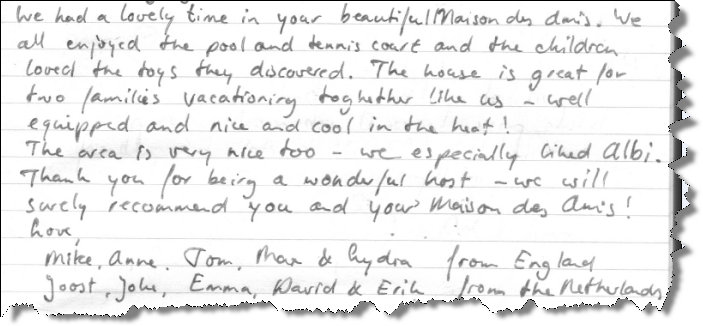 We had a lovely time in your beautiful Maison des Amis. We
all enjoyed the pool and tennis court and the children
loved the toys they discovered. The house is great for
two families vacationing toghether like us - well
equipped and nice and cool in the heat!
The area is very nice too - we especially liked Albi.
Thank you for being a wonderful host - we will
surely recommend you and your Maison des Amis!
Love,
Mike, Anne, Tom, Max & Lydia from England
Joost, Joke, Emma, David & Erik from the Netherlands